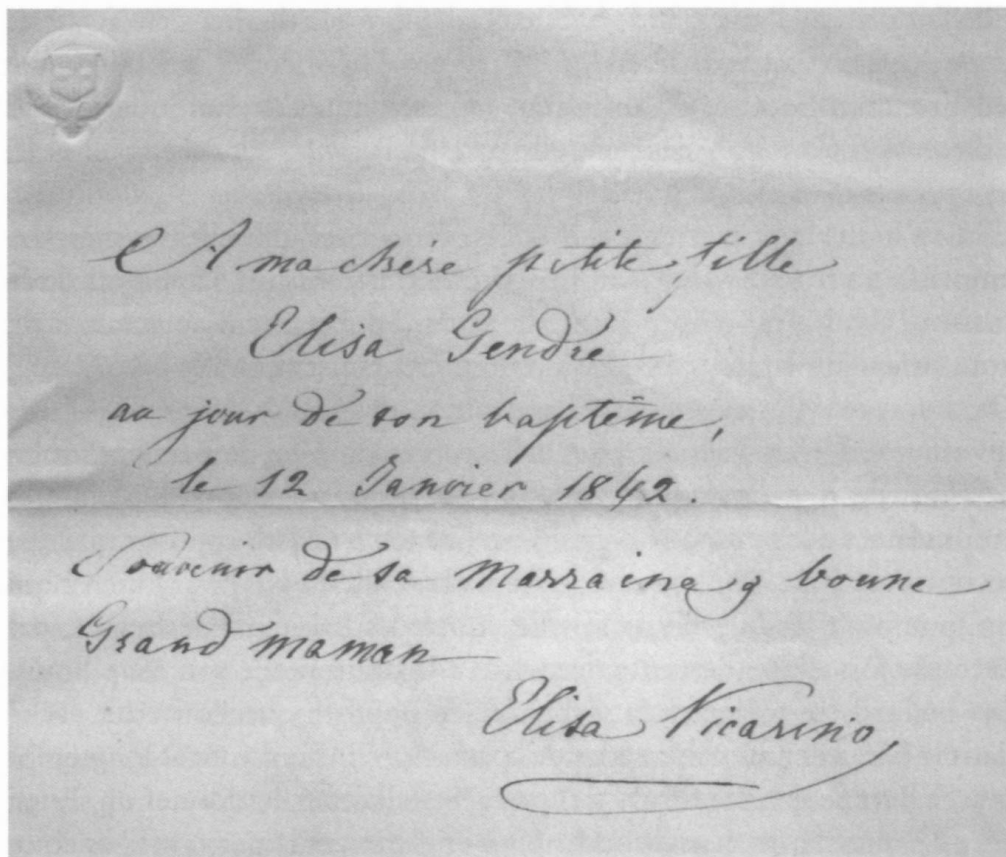 A ma chère petite fille
Elisa Gendre
au jour de son baptême,
le 12 Janvier 1842.
Souvenir de sa Marraine & bonne
Grand maman
Elisa Vicarino